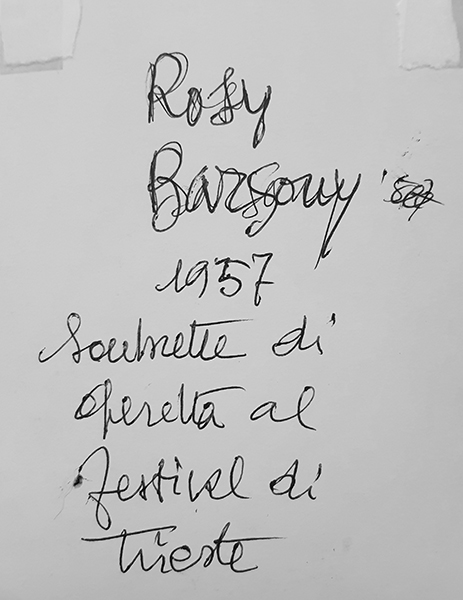 Rosy
Barsony '57
1957
Soubrette di
operetta al
festival di
Trieste